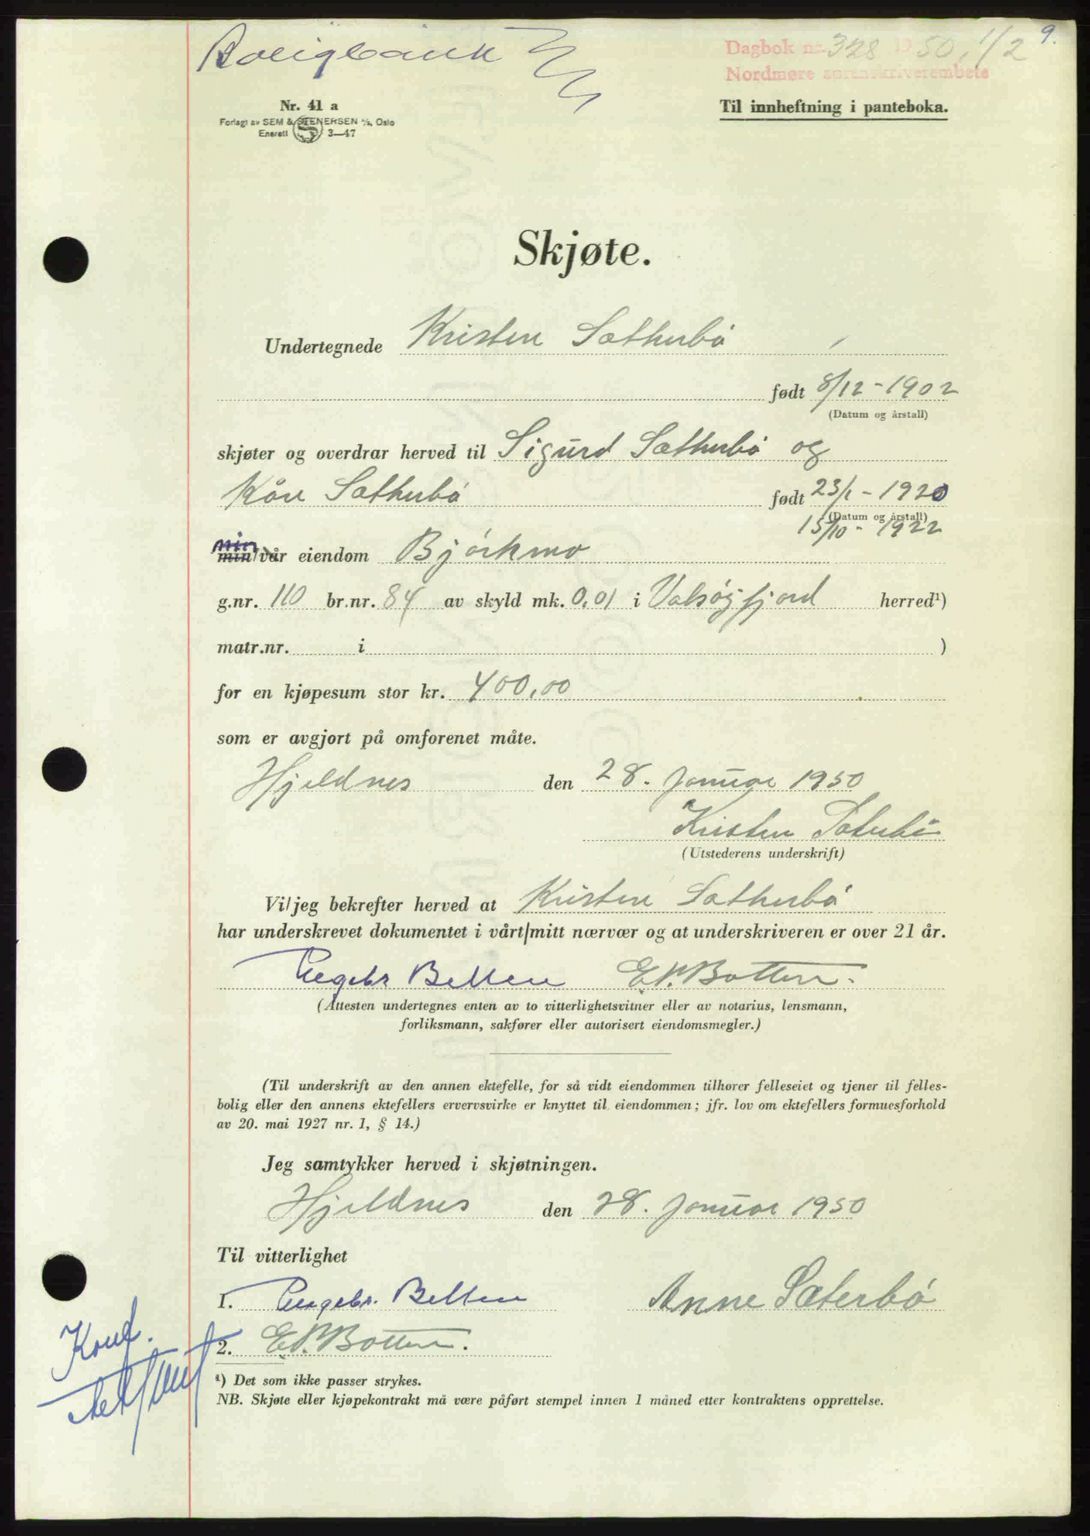 Boligbank
9.
Dagbok nr. 328 1950, 1/2
Nordmøre sorenskriverembete
Nr. 41 a
Forlagt av SEM & STENERSEN A/S, Oslo
Enerett S 3—47
Til innheftning i panteboka.
Skjøte.
Undertegnede Kristen Sætherbø
født 8/12-1902
(Datum og årstall)
skjøter og overdrar herved til Sigurd Sætherbø og
Kåre Sætherbø født 23/1-1920
(Datum og årstall)
15/10-1922
min
min/vår eiendom Bjørkmo
g.nr. 110 br.nr. 84 av skyld mk. 0,01 i Valsøyfjord herred¹)
matr.nr. i )
for en kjøpesum stor kr. 400,00
som er avgjort på omforenet måte.
Hjeldnes den 28. januar 1950
Kristen Sæterbø
(Utstederens underskrift)
Vi/jeg bekrefter herved at Kristen Sætherbø
har underskrevet dokumentet i vårt/mitt nærvær og at underskriveren er over 21 år.
Engebr. Belten E. P. Botten.
(Attesten undertegnes enten av to vitterlighetsvitner eller av notarius, lensmann,
forliksmann, sakfører eller autorisert eiendomsmegler.)
(Til underskrift av den annen ektefelle, for så vidt eiendommen tilhører felleseiet og tjener til felles-
bolig eller den annens ektefellers ervervsvirke er knyttet til eiendommen; jfr. lov om ektefellers formuesforhold
av 20. mai 1927 nr. 1, § 14.)
Jeg samtykker herved i skjøtningen.
Hjeldnes den 28. januar 1950
Til vitterlighet
1. Engebr. Belten Anne Sæterbø
2. E. P. Botten.
Konf.
¹) Det som ikke passer strykes.
NB. Skjøte eller kjøpekontrakt må være påført stempel innen 1 måned etter kontraktens opprettelse.